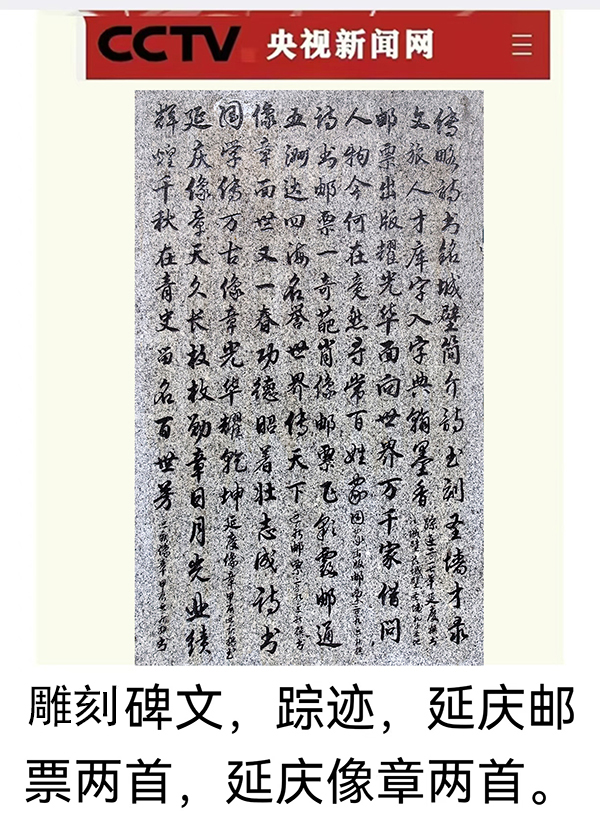 CCTV 央视新闻网
传略诗书铭城壁简介韵 刻圣墙才录
文旅人才库字入字典翰墨香
邮票出版耀光华面向世界万千家借问
人物今何在竟然寻常百姓家
诗书邮票一奇葩肖像邮票飞彩霞邮通
五洲达四海名誉世界传天下
像章面世又一春功德昭着壮志成诗书
国学传万古像章光华耀乾坤 延庆像章
延庆像章天久长枚枚勋章日月光业绩
辉煌千秋在青史留名百世芳
雕刻碑文，踪迹，延庆邮
票两首，延庆像章两首。